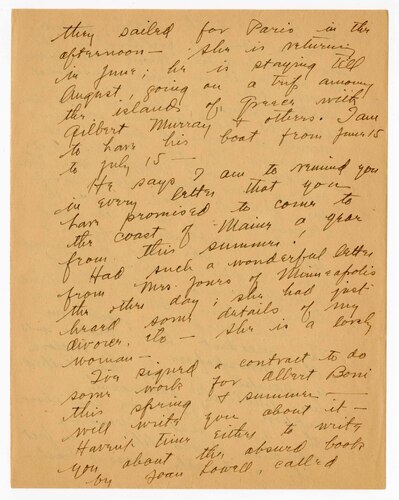 they sailed for Paris in the
afternoon — she is returning
in June; he is staying till
August, going on a trip among
the islands of Greece with
Gilbert Murray & others. I am
to have his boat from June 15
to July 15 —
He says I am to remind you
in every letter that you
have promised to come to
the coast of Maine a year
from this summer!
Had such a wonderful letter
from Mrs. Jones of Minneapolis
the other day; she had just
heard some details of my
divorce, etc — she is a lovely
woman —
I've signed a contract to do
some work for Albert Boni
this spring & summer —
will write you about it —
Haven't time either to write
you about the absurd book
by Joan Lowell, called